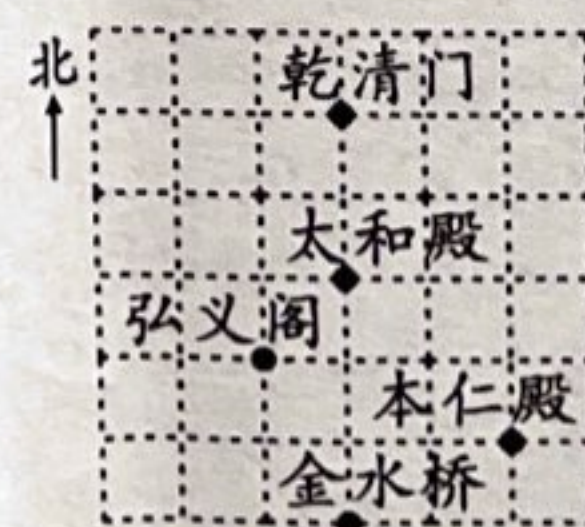 北
乾清门
太和殿
弘义阁
本仁殿
金水桥